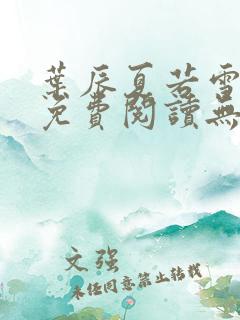 葉辰夏若雪
免費閱讀無
文强
未经同意禁止转载